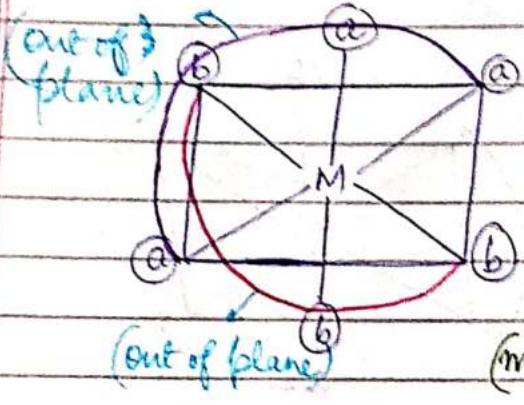 (out of
plane)
a
b
a
M
a
b
b
(out of plane)
(m